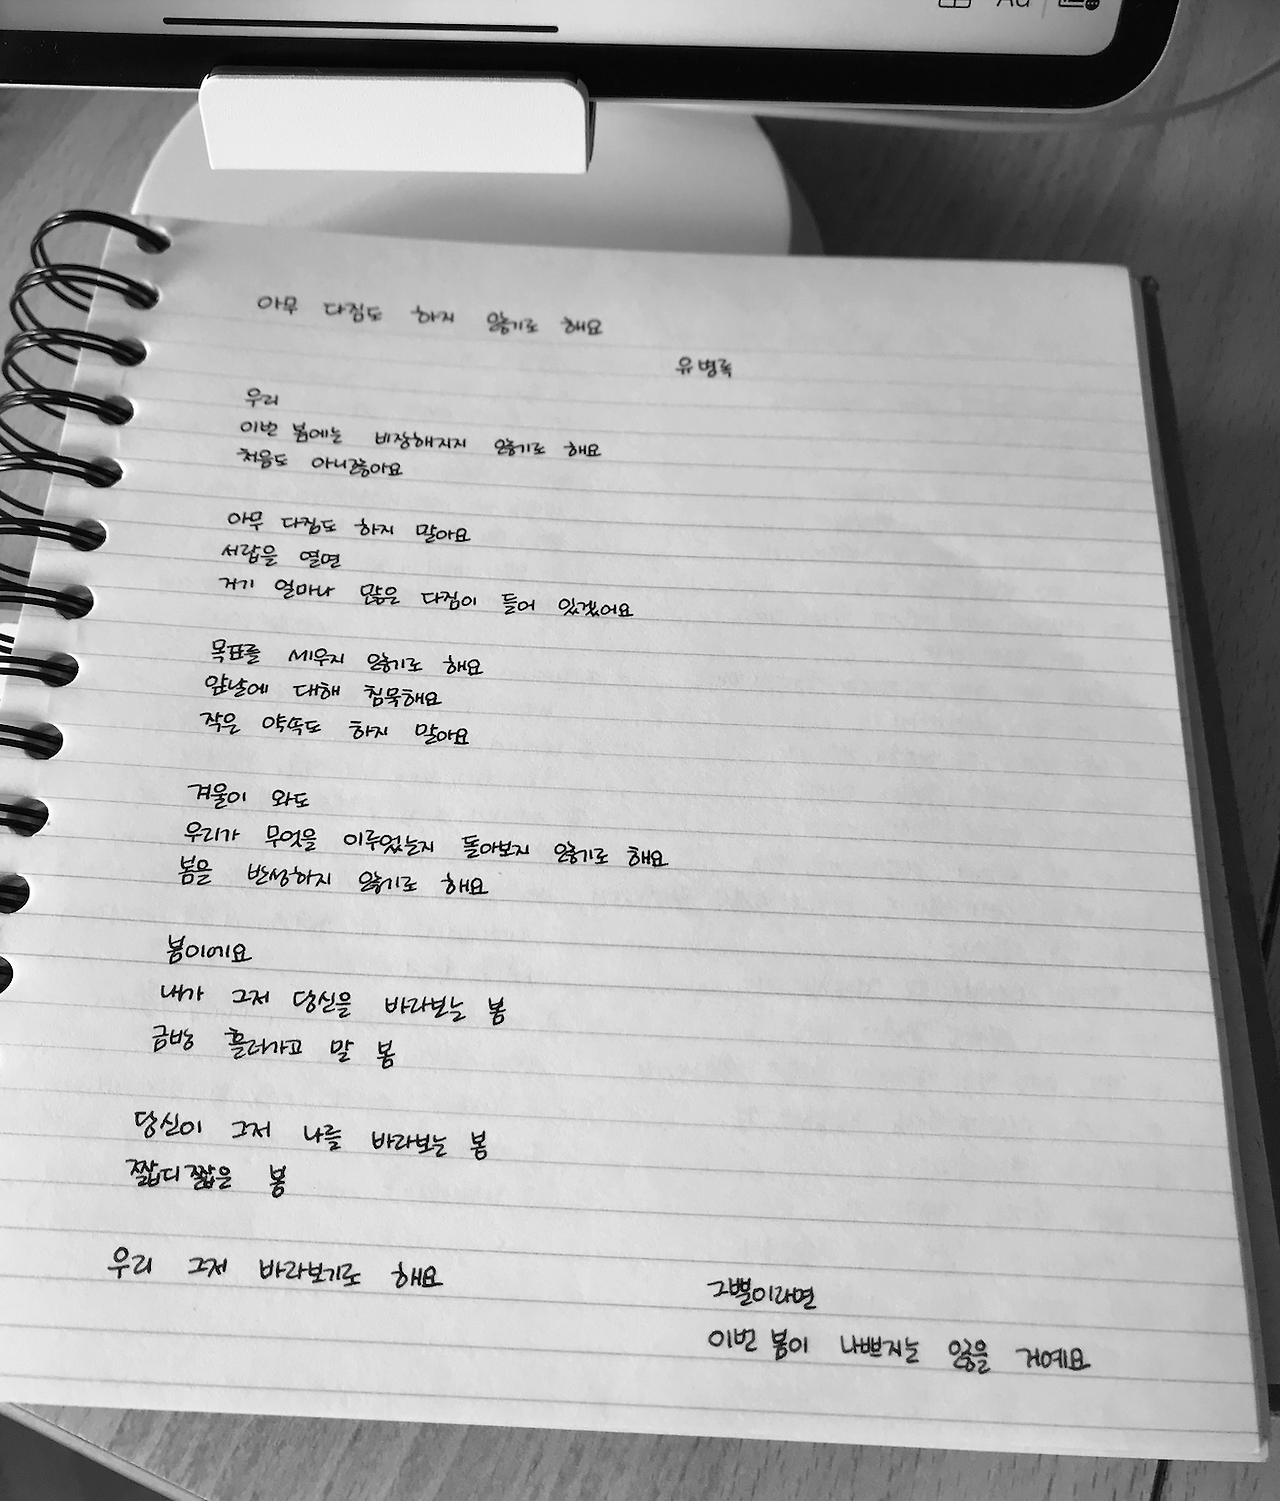 Aa
아무 다짐도 하지 않기로 해요
유병록
우리
이번 봄에는 비장해지지 않기로 해요
처음도 아니잖아요
아무 다짐도 하지 말아요
서랍을 열면
거기 얼마나 많은 다짐이 들어 있겠어요
목표를 세우지 않기로 해요
앞날에 대해 침묵해요
작은 약속도 하지 말아요
겨울이 와도
우리가 무엇을 이루었는지 돌아보지 않기로 해요
봄을 반성하지 않기로 해요
봄이에요
내가 그저 당신을 바라보는 봄
금방 흘러가고 말 봄
당신이 그저 나를 바라보는 봄
짧디 짧은 봄
우리 그저 바라보기로 해요
그뿐이라면
이번 봄이 나쁘지는 않을 거예요